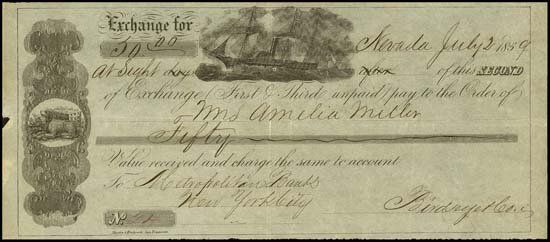 Exchange for
50.00
Nevada July 2 1859
At Sight days after of this SECOND
of Exchange (First & Third unpaid) pay to the Order of
Mrs Amelia Miller
Fifty
Value received and charge the same to account
To Metropolitan Bank
New York City
No